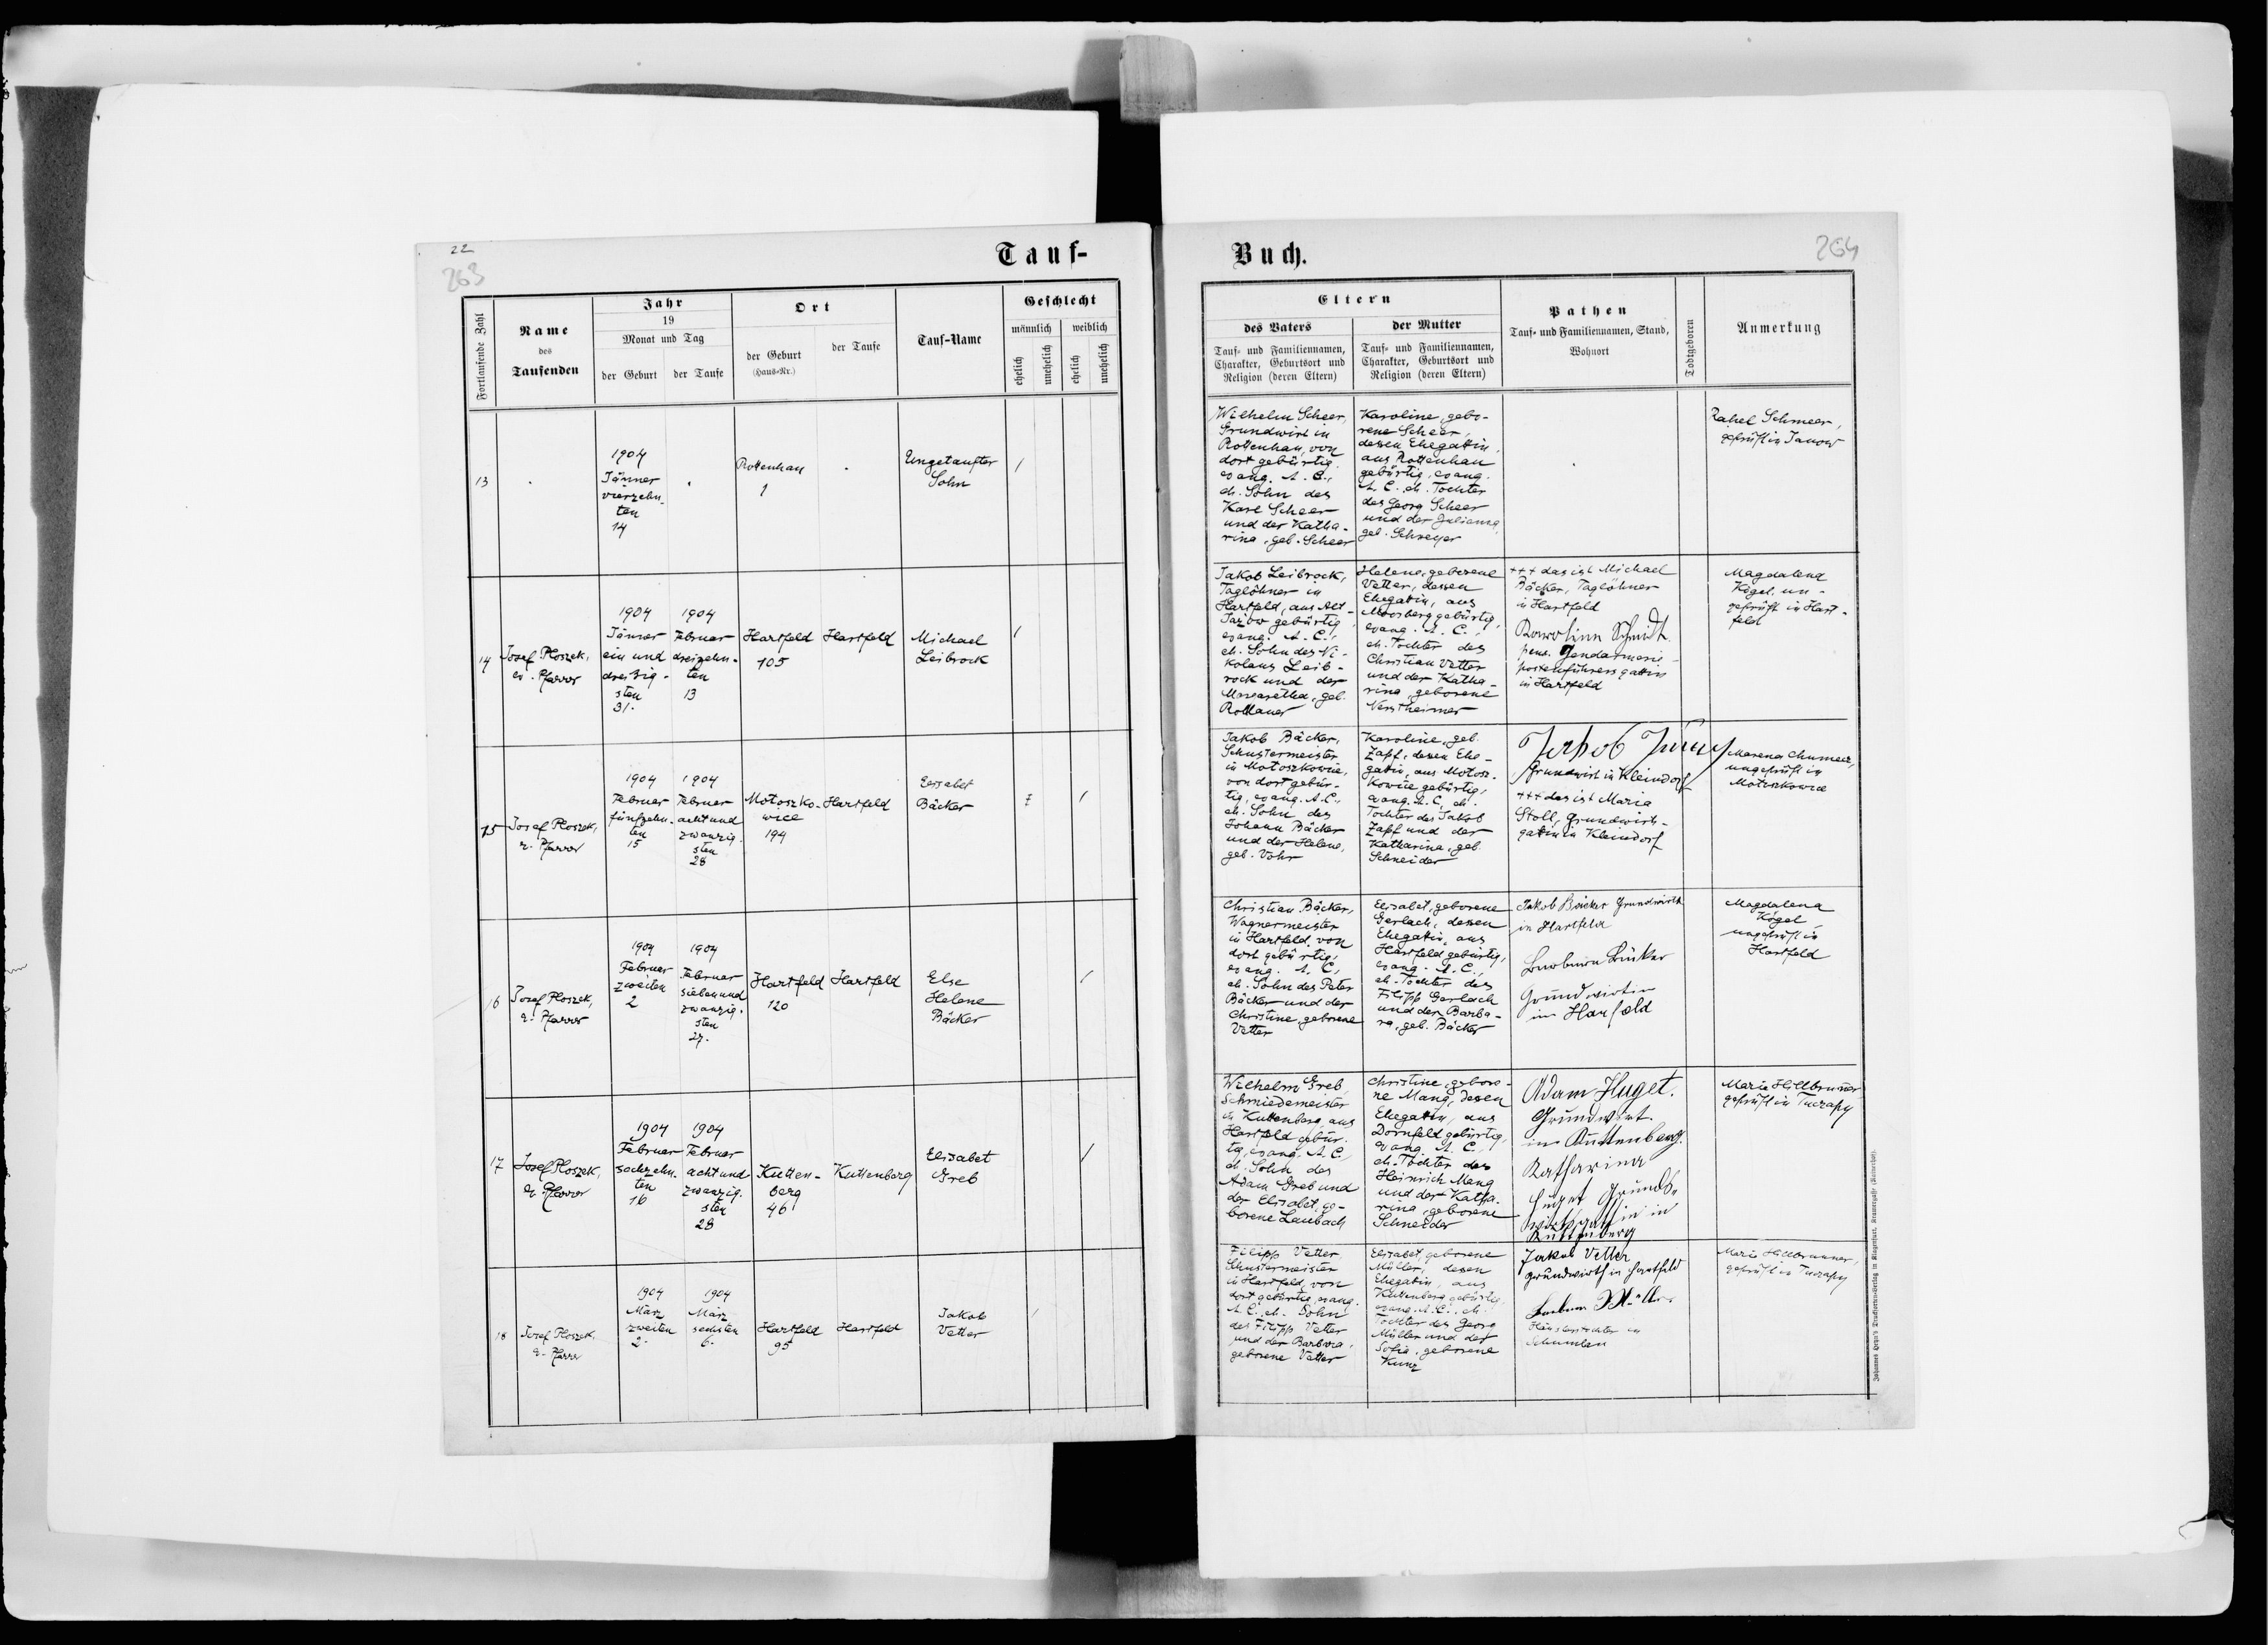 22
263
Tauf-
Fortlaufende Zahl
Name
des
Taufenden
Jahr
19
Monat und Tag
der Geburt
der Taufe
Ort
der Geburt
(Haus-Nr.)
der Taufe
Tauf-Name
Geschlecht
männlich
weiblich
ehelich
unehelich
ehelich
unehelich
13
1904
Jänner
vierzehn-
ten
14
Rottenhan
1
Ungetaufter
Sohn
/
14
Josef Ploszek,
ev. Pfarrer
1904
Jänner
ein und
dreißig-
sten
31.
1904
Februar
dreizehn-
ten
13
Hartfeld
105
Hartfeld
Michael
Leibrock
/
15
Josef Ploszek,
ev. Pfarrer
1904
Februar
fünfzehn-
ten
15
1904
Februar
acht und
zwanzig-
sten
28
Motoszko-
wice
194
Hartfeld
Elisabet
Bäcker
/
16
Josef Ploszek,
ev. Pfarrer
1904
Februar
zweiten
2
1904
Februar
sieben und
zwanzig-
sten
27.
Hartfeld
120
Hartfeld
Else
Helene
Bäcker
/
17
Josef Ploszek,
ev. Pfarrer
1904
Februar
sechzehn-
ten
16
1904
Februar
acht und
zwanzig-
sten
28
Kutten-
berg
46
Kuttenberg
Elisabet
Greb
/
18
Josef Ploszek,
ev. Pfarrer
1904
März
zweiten
2.
1904
März
sechsten
6.
Hartfeld
95
Hartfeld
Jakob
Vetter
/
Buch.
264
Eltern
des Vaters
Tauf- und Familiennamen,
Charakter, Geburtsort und
Religion (deren Eltern)
der Mutter
Tauf- und Familiennamen,
Charakter, Geburtsort und
Religion (deren Eltern)
Pathen
Tauf- und Familiennamen, Stand,
Wohnort
Todtgeboren
Anmerkung
Wilhelm Scheer,
Grundwirt in
Rottenhan, von
dort gebürtig,
evang. A. C.,
eh. Sohn des
Karl Scheer
und der Katha-
rina, geb. Scheer
Karoline, gebo-
rene Scheer,
dessen Ehegattin,
aus Rottenhan
gebürtig, evang.
A. C., eh. Tochter
des Georg Scheer
und der Julianna,
geb. Schreyer
Rahel Schmeer,
geprüft in Janow
Jakob Leibrock,
Taglöhner in
Hartfeld, aus Alt-
Jazow gebürtig,
evang. A. C.,
eh. Sohn des Ni-
kolaus Leib-
rock und der
Margaretha, geb.
Rollauer
Helene, geborene
Vetter, dessen
Ehegattin, aus
Moosberg gebürtig,
evang. A. C.,
eh. Tochter des
Christian Vetter
und der Katha-
rina, geborene
+++ das ist Michael
Bäcker, Taglöhner
in Hartfeld
Karolina Schmidt
pens. Gendarmerie-
postenführersgattin
in Hartfeld
Magdalena
Kögel, un-
geprüft in Hart-
feld
Jakob Bäcker,
Schustermeister
in Motoszkowice,
von dort gebür-
tig, evang. A. C.,
eh. Sohn des
Johann Bäcker
und der Helene,
geb. Vohr
Karoline, geb.
Zapf, dessen Ehe-
gattin, aus Motosz-
kowice gebürtig,
evang. A. C., eh.
Tochter des Jakob
Zapf und der
Katharina, geb.
Schneider
Jakob
Grundwirt in Kleindorf
+++ das ist Maria
Stoll, Grundwirts-
gattin in Kleindorf
Marena
ungeprüft in
Motoszkowice
Christian Bäcker,
Wagnermeister
in Hartfeld, von
dort gebürtig,
evang. A. C.,
eh. Sohn des Peter
Bäcker und der
Christine geborene
Vetter
Elisabet, geborene
Gerlach, dessen
Ehegattin, aus
Hartfeld gebürtig,
evang. A. C.,
eh. Tochter des
Filipp Gerlach
und der Barba-
ra, geb. Bäcker
Jakob Bäcker Grundwirth
in Hartfeld
Barbara Bäcker
Grundwirtin
in Harfeld
Magdalena
Kögel
ungeprüft in
Hartfeld
Wilhelm Greb,
Schmiedemeister
in Kuttenberg, aus
Hartfeld gebür-
tig, evang. A. C.,
eh. Sohn des
Adam Greb und
der Elisabet, ge-
borene Laubach
Christine, gebore-
ne Mang, dessen
Ehegattin, aus
Dornfeld gebürtig,
evang. A. C.,
eh. Tochter des
Heinrich Mang
und der Katha-
rina, geborene
Schneider
Adam Huget.
Grundwirt
in Kuttenberg.
Katharina
Huget Grunds-
wirtsgattin in
Kuttenberg
Maria Hillbrunner
geprüft in Tuczapy
Filipp Vetter,
Schustermeister
in Hartfeld, von
dort gebürtig, evang.
A. C., eh. Sohn
des Filipp Vetter
und der Barbara,
geborene Vetter
Elisabet, geborene
Müller, dessen
Ehegattin, aus
Kuttenberg gebürtig,
evang. A. C., eh.
Tochter des Georg
Müller und der
Sofia, geborene
Kunz
Jakob Vetter
Grundwirth in Hartfeld
Barbara Müller
Häuslerstochter in
Maria Hillbrunner,
geprüft in Tuczapy